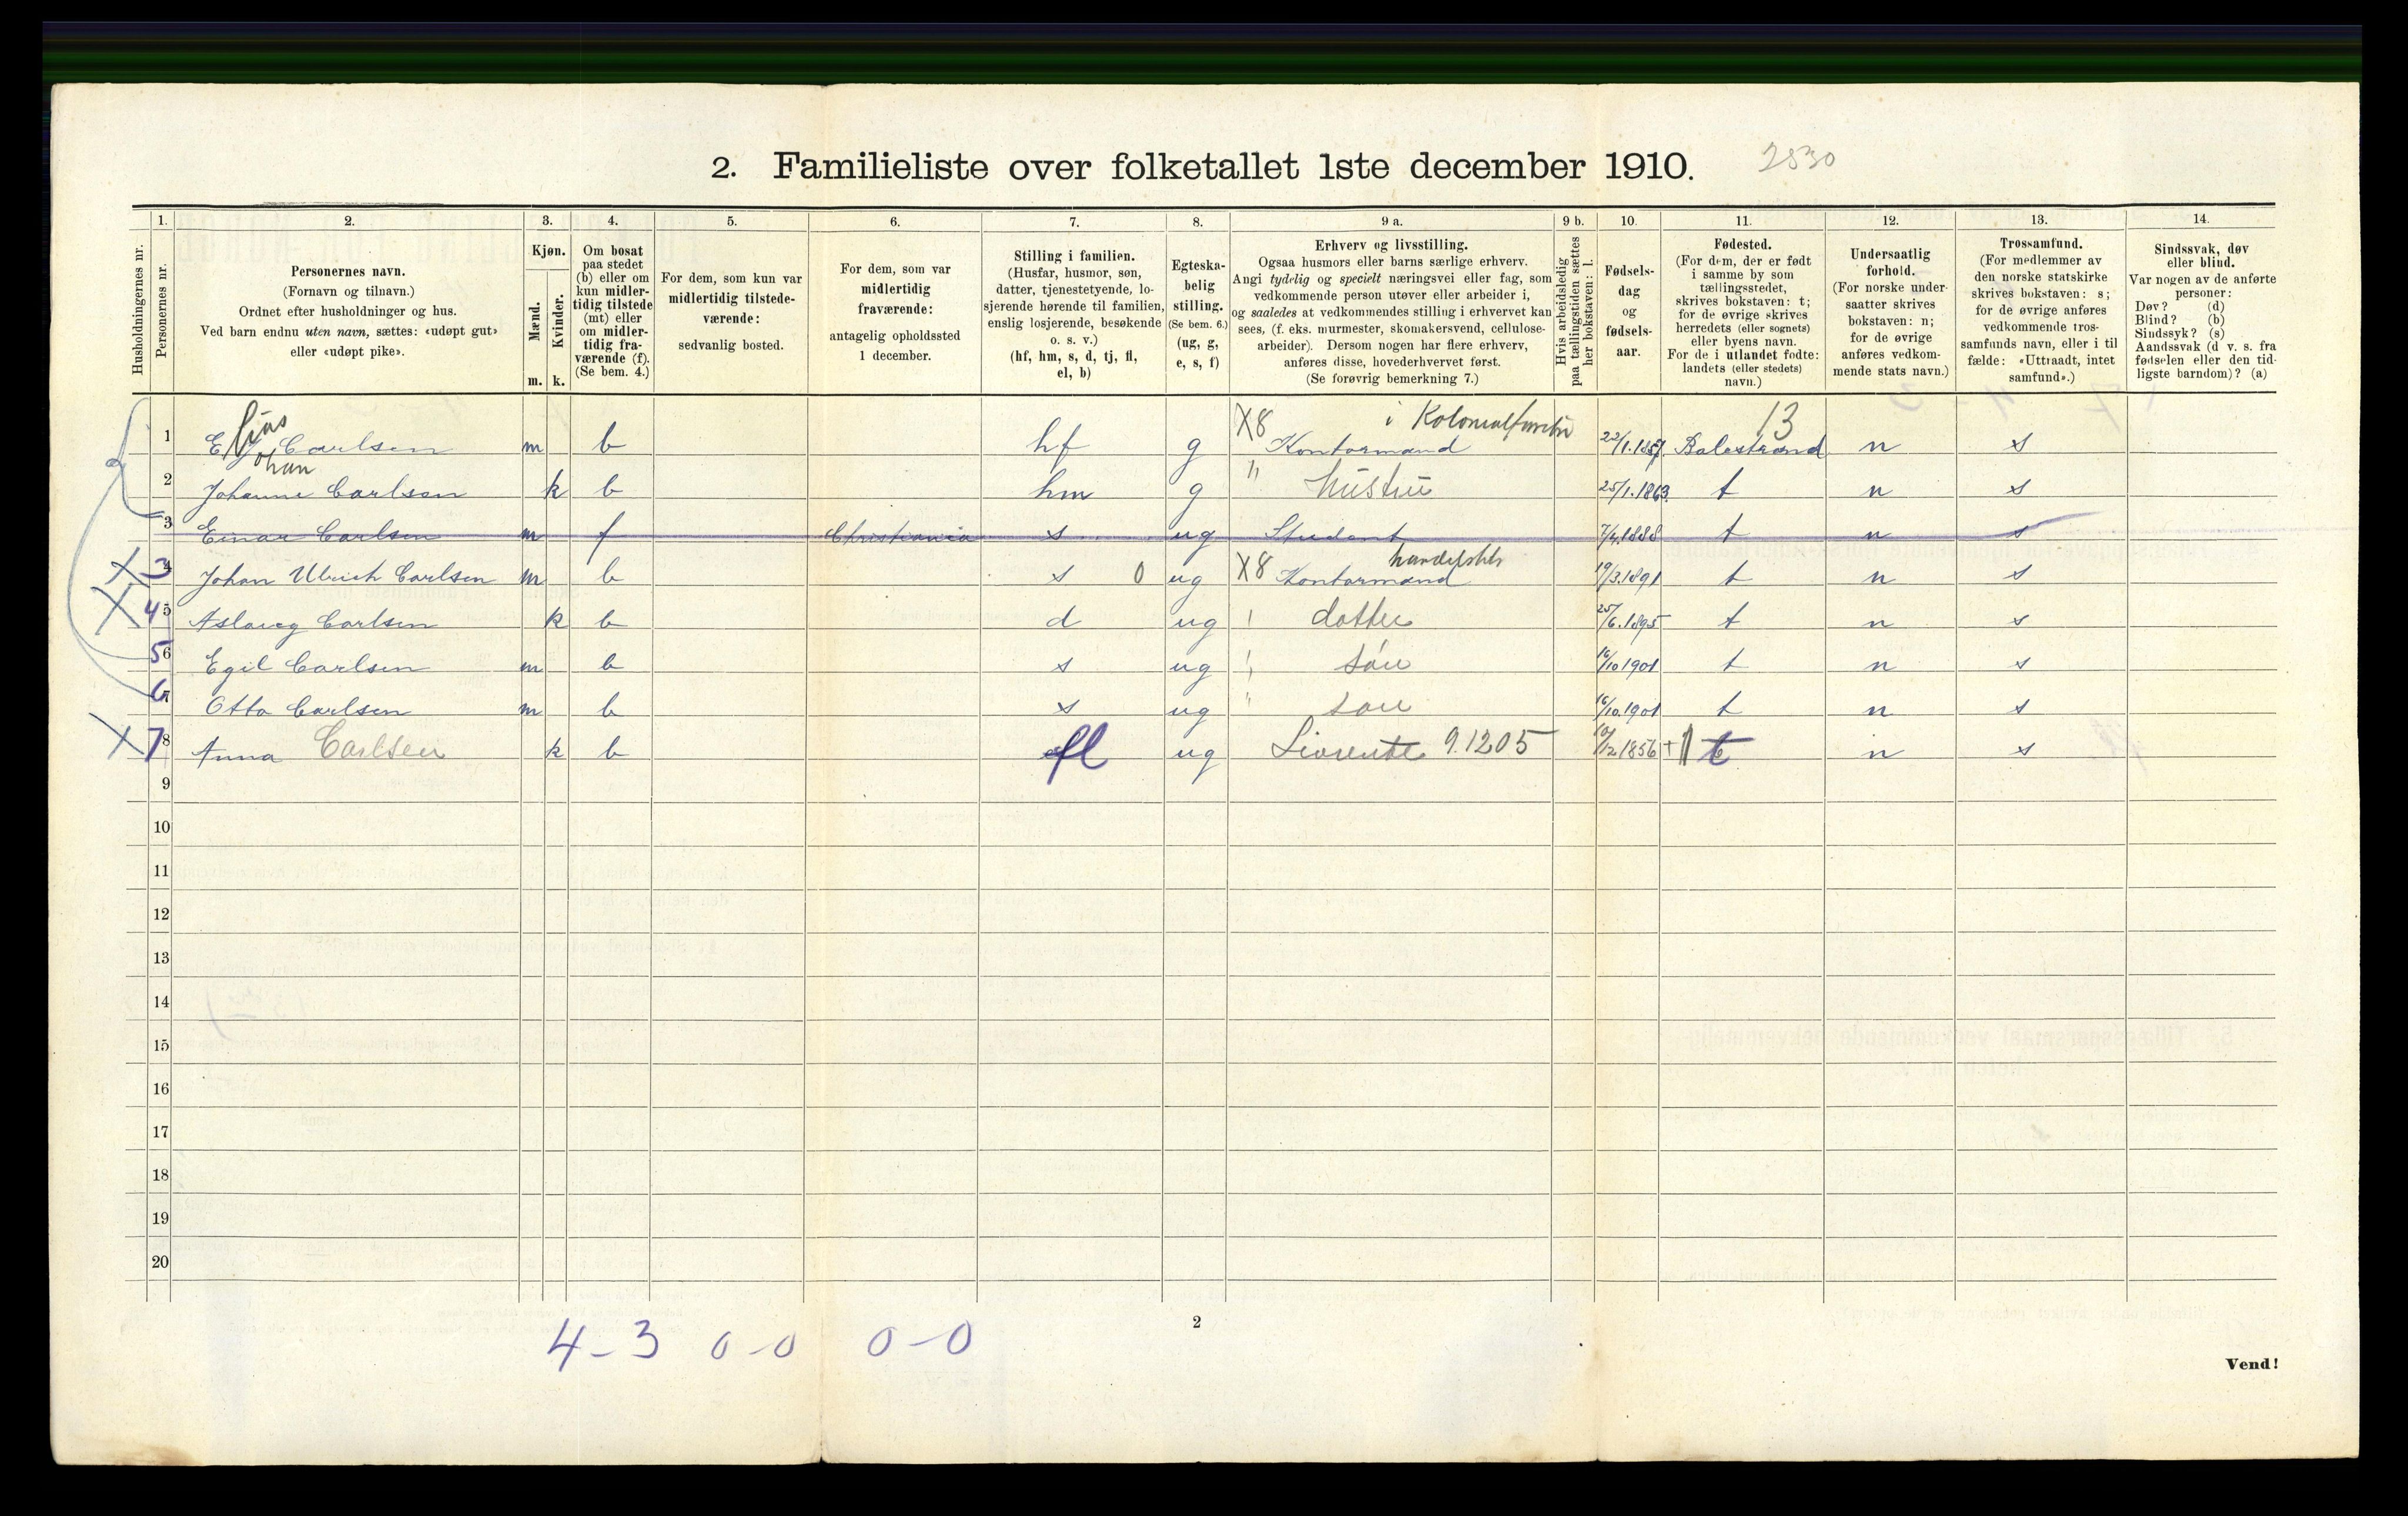 2. Familieliste over folketallet 1ste december 1910. 2830
Husholdningernes nr.
1. Personernes nr.
2. Personernes navn. (Fornavn og tilnavn.) Ordnet efter husholdninger og hus. Ved barn endnu uten navn, sættes: «udøpt gut» eller «udøpt pike».
3. Kjøn. Mænd. m. Kvinder. k.
4. Om bosat paa stedet (b) eller om kun midlertidig tilstede (mt) eller om midlertidig fraværende (f). (Se bem. 4.)
5. For dem, som kun var midlertidig tilstedeværende: sedvanlig bosted.
6. For dem, som var midlertidig fraværende: antagelig opholdssted 1 december.
7. Stilling i familien. (Husfar, husmor, søn, datter, tjenestetyende, losjerende hørende til familien, enslig losjerende, besøkende o. s. v.) (hf, hm, s, d, tj, fl, el, b)
8. Egteskabelig stilling. (Se bem. 6.) (ug, g, e, s, f)
9 a. Erhverv og livsstilling. Ogsaa husmors eller barns særlige erhverv. Angi tydelig og specielt næringsvei eller fag, som vedkommende person utøver eller arbeider i, og saaledes at vedkommendes stilling i erhvervet kan sees, (f. eks. murmester, skomakersvend, cellulosearbeider). Dersom nogen har flere erhverv, anføres disse, hovederhvervet først. (Se forøvrig bemerkning 7.)
9 b. Hvis arbeidsledig paa tællingstiden sættes her bokstaven: l.
10. Fødselsdag og fødselsaar.
11. Fødested. (For dem, der er født i samme by som tællingsstedet, skrives bokstaven: t; for de øvrige skrives herredets (eller sognets) eller byens navn. For de i utlandet fødte: landets (eller stedets) navn.)
12. Undersaatlig forhold. (For norske undersaatter skrives bokstaven: n; for de øvrige anføres vedkommende stats navn.)
13. Trossamfund. (For medlemmer av den norske statskirke skrives bokstaven: s; for de øvrige anføres vedkommende trossamfunds navn, eller i tilfælde: «Uttraadt, intet samfund».)
14. Sindssvak, døv eller blind. Var nogen av de anførte personer: Døv? (d) Blind? (b) Sindssyk? (s) Aandssvak (d v. s. fra fødselen eller den tidligste barndom)? (a)
1 E lias J ohan Carlsen m b hf g X8 Kontormand i 22/1.1857. Balestrand 13 n s
2 Johanne Carlsen k b hm g " hustru 25/1.1863. t n s
3 Einar Carlsen m f Christiania s ug Student 7/4.1888 t n s
4 3 Johan Ulrich Carlsen m b s 0 ug X8 Kontormand 19/3.1891 t n s
5 4 Aslaug Carlsen k b d ug " datter 25/6.1895 t n s
6 5 Egil Carlsen m b s ug " søn 16/10 1901 t n s
7 6 Otto Carlsen m b s ug " søn 16/10.1901 t n s
8 7 Anna Carlsen k b fl ug Livrente 9.1205 10/12 1856 + t n s
9
10
11
12
13
14
15
16
17
18
19
20
4-3 0-0 0-0
2
Vend!